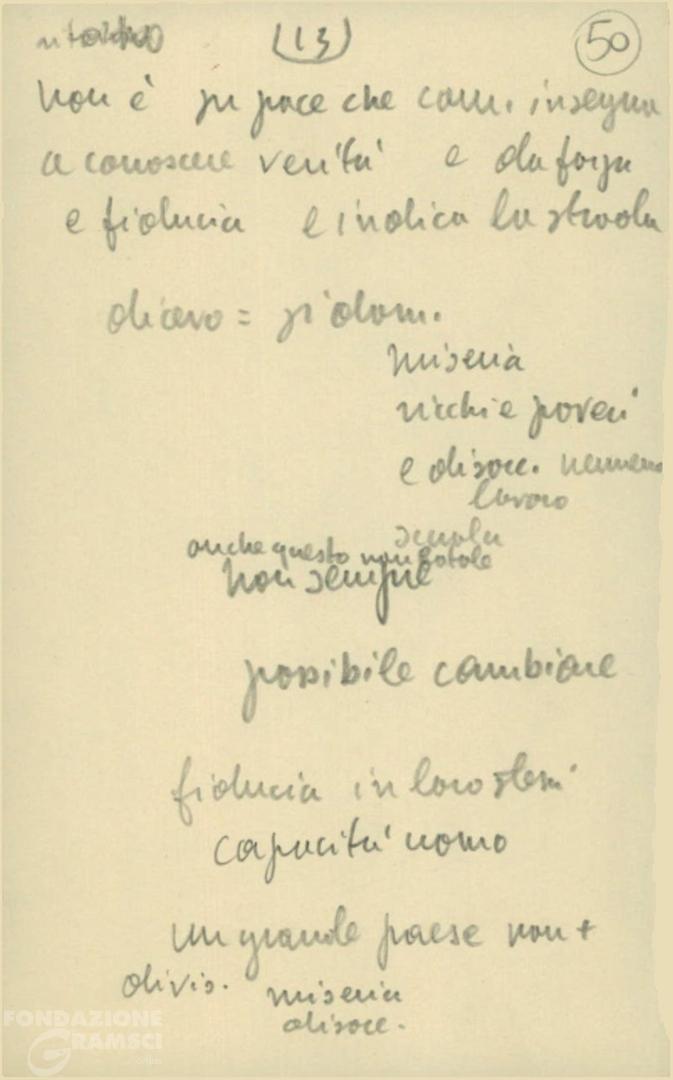 (13)
50
non è su pace che com. insegna
a conoscere verità e da forza
e fiducia e indica la strada
dicevo = si dom.
miseria
ricchi e poveri
e disocc. nemmeno
lavoro
scuola
anche questo non
non sempre
possibile cambiare
fiducia in loro stessi
capacità uomo
un grande paese non +
divis. miseria
disocc.
FONDAZIONE
GRAMSCI